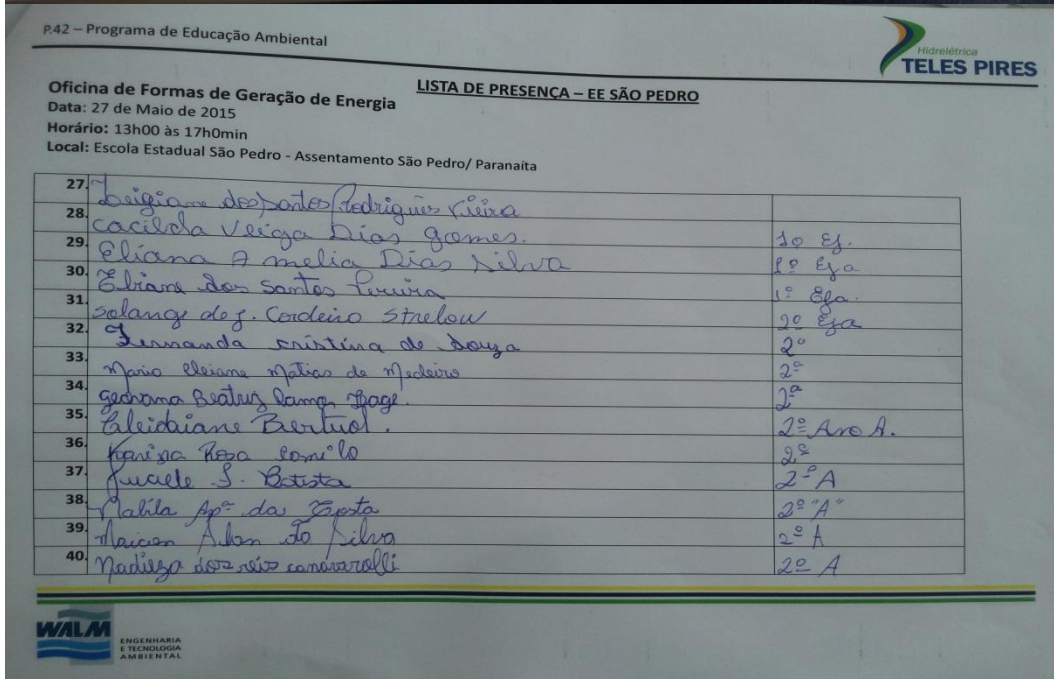 P.42 – Programa de Educação Ambiental
Hidrelétrica
TELES PIRES
LISTA DE PRESENÇA – EE SÃO PEDRO
Oficina de Formas de Geração de Energia
Data: 27 de Maio de 2015
Horário: 13h00 às 17h0min
Local: Escola Estadual São Pedro - Assentamento São Pedro/ Paranaíta
27. Leigiane dos santos Rodrigues Vieira
28. Cacilda Veiga Dias gomes. 1º Ej.
29. Eliana Amelia Dias Silva 1º Eja
30. Eliane dos santos Pereira 1º Eja.
31. solange de j. Cordeiro Strelow 2º Eja
32. Fernanda cristina de Souza 2º
33. Mario Cleiane Matias de Medeiro 2º
34. Beatriz 2ª
35. Cleidiane Bertuol. 2º Ano A.
36. Rosa Camilo 2º
37. S. Batista 2º A
38. Apª da Costa 2º "A"
39. Maicon Alan da Silva 2º A
40. dos reis canavarolli 2º A
WALM
ENGENHARIA
E TECNOLOGIA
AMBIENTAL